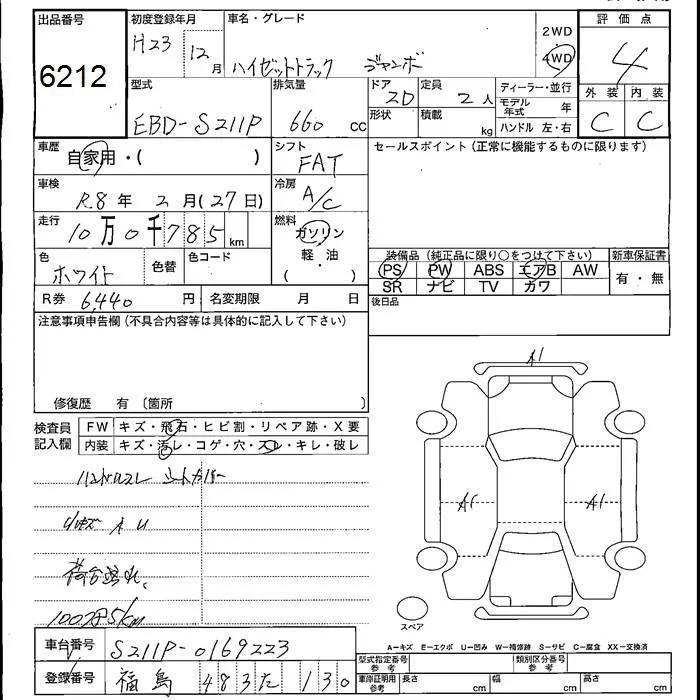 出品番号
6212
初度登録年月
H23 12月
車名・グレード
ハイゼットトラック ジャンボ
2WD
4WD
評価点
4
外装 内装
C C
型式
EBD-S211P
排気量
660 cc
ドア
2D
形状
定員
2人
積載
kg
ディーラー・並行
モデル年式 年
ハンドル 左・右
車歴
自家用・( )
シフト
FAT
セールスポイント (正常に機能するものに限ります)
車検
R.8年 2月(27日)
冷房
A/C
走行
10万0千785km
燃料
ガソリン
軽・油
( )
色
ホワイト
色替
色コード
装備品 (純正品に限り○をつけて下さい)
PS PW ABS エアB AW
SR ナビ TV カワ
新車保証書
有・無
R券 6,440円
名変期限 月 日
後日品
注意事項申告欄 (不具合内容等は具体的に記入して下さい)
修復歴 有 〔箇所 〕
検査員記入欄
FW キズ・飛石・ヒビ割・リペア跡・X要
内装 キズ・汚レ・コゲ・穴・スレ・キレ・破レ
ハンドルスレ シートカバー
小キズ A U
A1
A1
A1
スペア
A−キズ E−エクボ U−凹み W−補修跡 S−サビ C−腐食 XX−交換済
車台番号 S211P-0169223
登録番号 福島 483た 130
型式指定番号参考
類別区分番号参考
車庫証明用参考 長さ cm 幅 cm 高さ cm